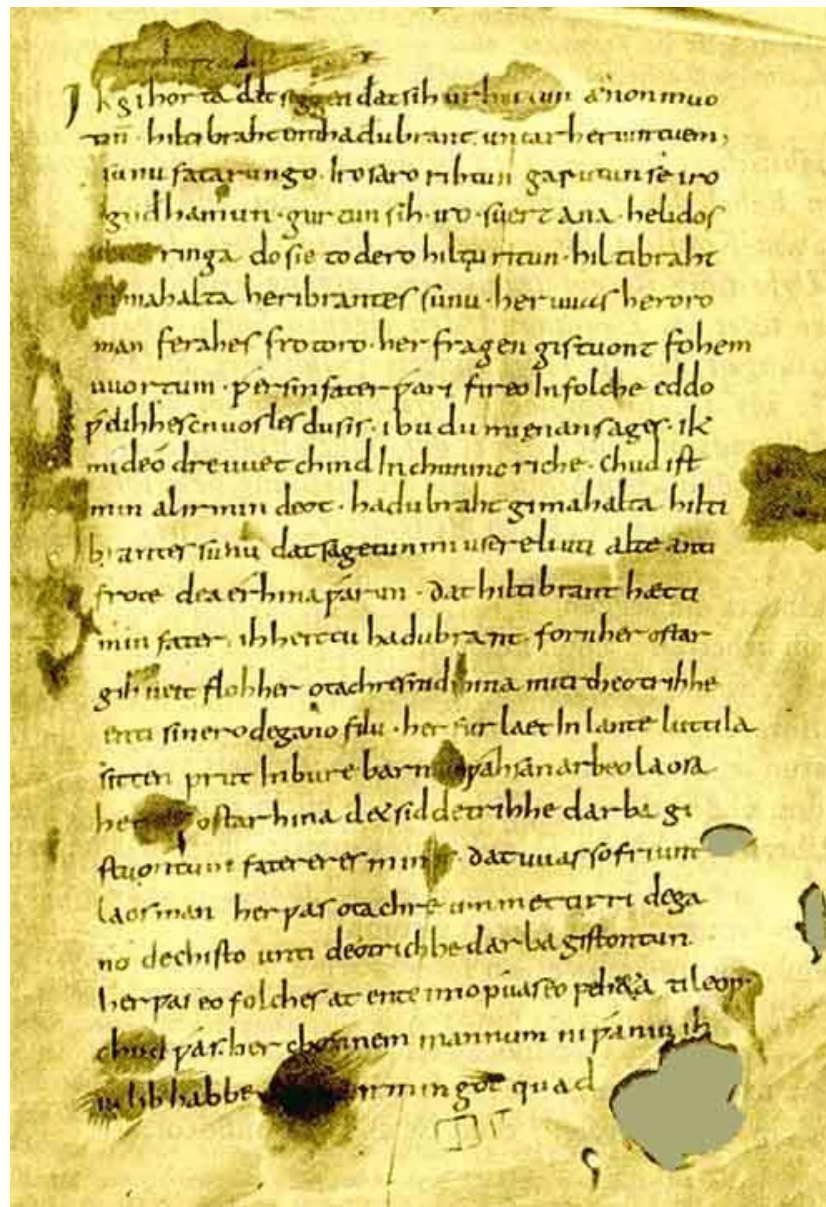 Ik gihorta ðat seggen ðat sih urhettun ænon muo
tin · hiltibraht enti haðubrant · untar heriun tuem,
sunu fatarungo · Iro saro rihtun garutun se iro
guðhamun · gurtun sih · iro · suert ana · helidos
ubar ringa do sie to dero hiltu ritun · hiltibraht
gimahalta heribrantes sunu · her uuas heroro
man ferahes frotoro · her fragen gistuont fohem
uuortum · ƿer sin fater ƿari fireo In folche eddo
ƿelihhes cnuosles du sis · ibu du mi enan sages · ik
mi deo dre uuet chind In chunincriche · chud ist
min al irmin deot · hadubraht gimahalta hilti
brantes sunu dat sagetun mi usere liuti alte anti
frote dea er hina ƿarun · dat hiltibrant hætti
min fater · ih heittu hadubrant · forn her ostar
gihueit floh her otachres nid hina miti theotrihhe
enti sinero degano filu · her furlaet In lante luttila
sitten prut In bure barn unƿahsan arbeo laosa
her ostar hina d& sid detrihhe darba gi
stuontum fatereres mines · dat uuas so friunt
laos man her ƿas otachre ummettirri dega
no dechisto unti deotrichhe darba gistontun
her ƿas eo folches at ente imo ƿuas eo feh&a ti leop
chud ƿas her chonnem mannum ni ƿaniu ih
iu lib habbe irmingot quad